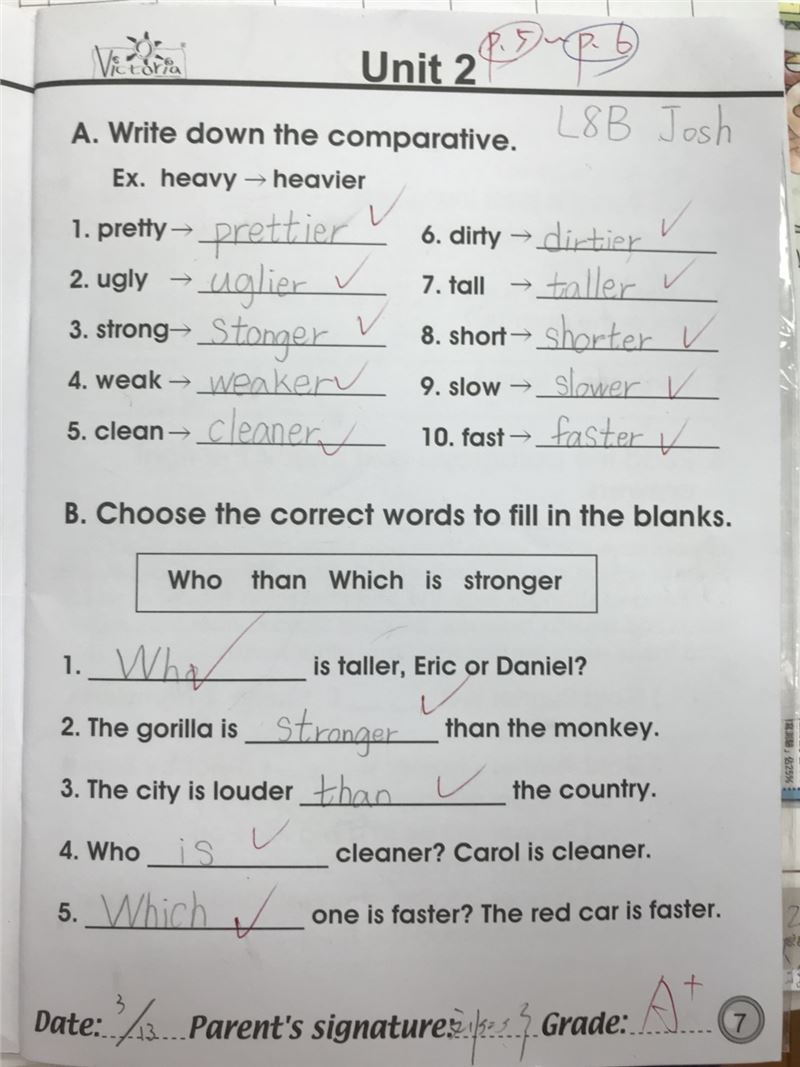 Victoria
Unit 2 p.5~p.6
L8B Josh
A. Write down the comparative.
Ex. heavy → heavier
1. pretty → prettier 6. dirty → dirtier
2. ugly → uglier 7. tall → taller
3. strong → Stonger 8. short → shorter
4. weak → weaker 9. slow → slower
5. clean → cleaner 10. fast → faster
B. Choose the correct words to fill in the blanks.
Who than Which is stronger
1. Who is taller, Eric or Daniel?
2. The gorilla is stronger than the monkey.
3. The city is louder than the country.
4. Who is cleaner? Carol is cleaner.
5. Which one is faster? The red car is faster.
Date: 3/13 Parent's signature: Grade: A+ 7